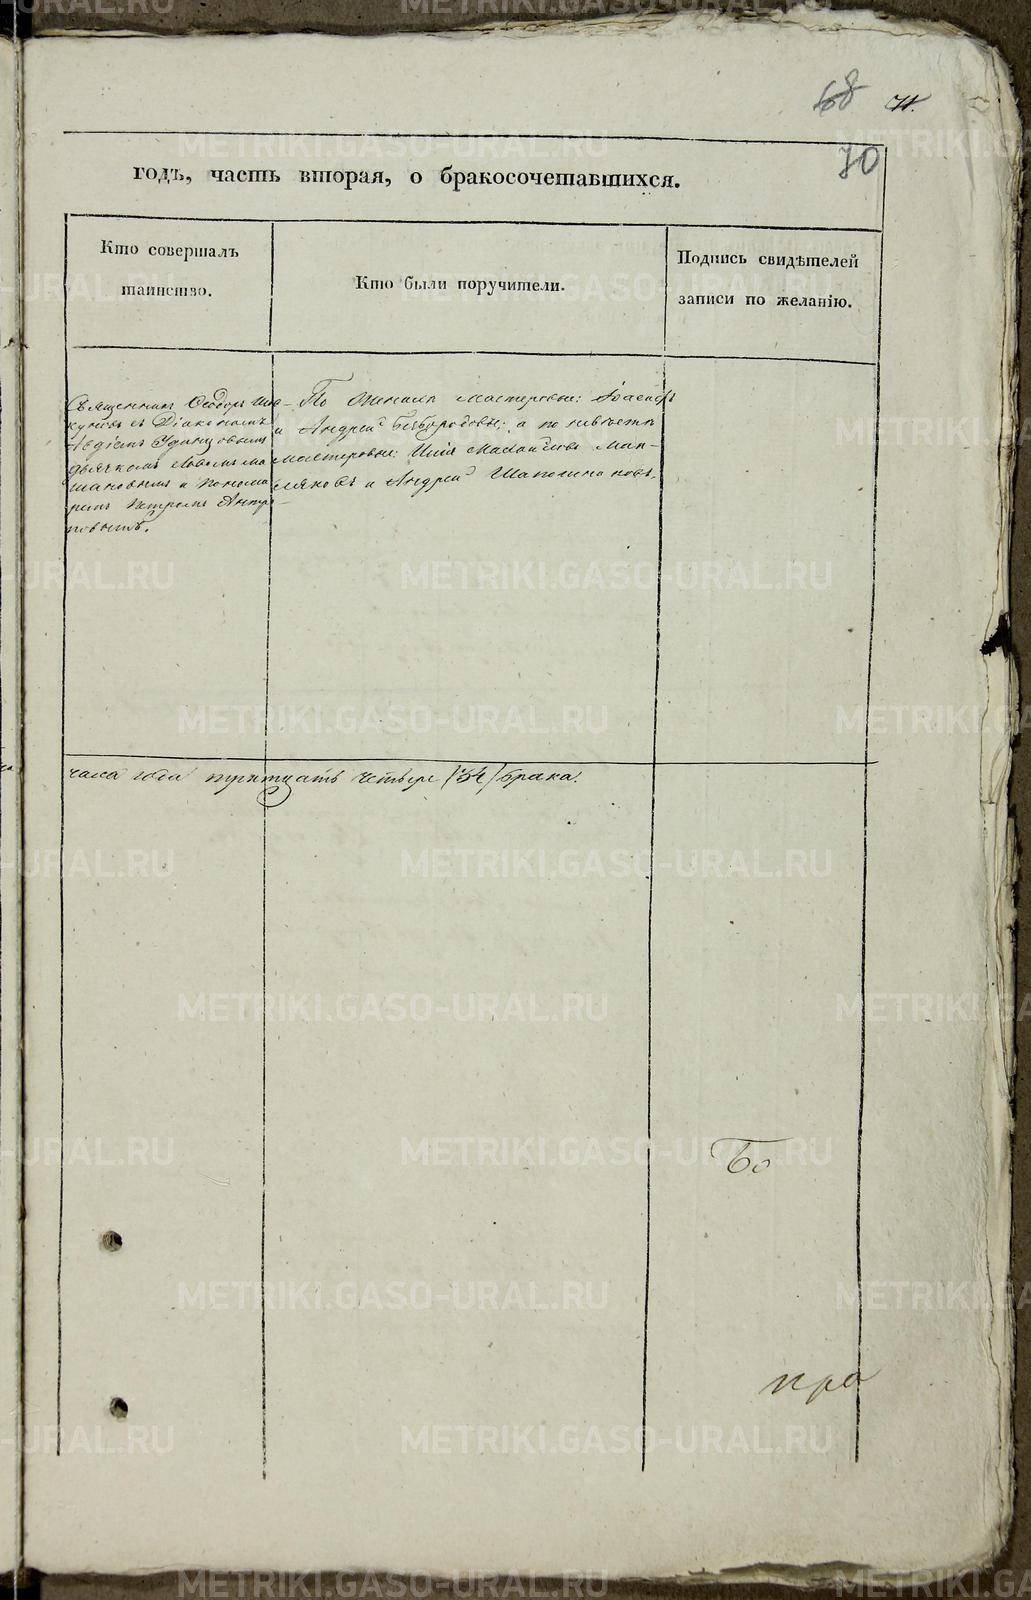 68 71.
70
годъ, часть вторая, о бракосочетавшихся.
Кто совершалъ
таинство.
Кто были поручители.
Подпись свидѣтелей
записи по желанію.
Священникъ Ѳеодоръ
съ Діакономъ
Авдіемъ
дьячкомъ
и Понома
ремъ Петромъ Антро
повымъ.
По женихѣ мастеровые: Іоасафъ
и Андрей Безбородовы; а по невѣстѣ
мастеровые: Илья
и Андрей
часа года тритцать четыре (34) брака.
Бо
пра
METRIKI.GASO-URAL.RU